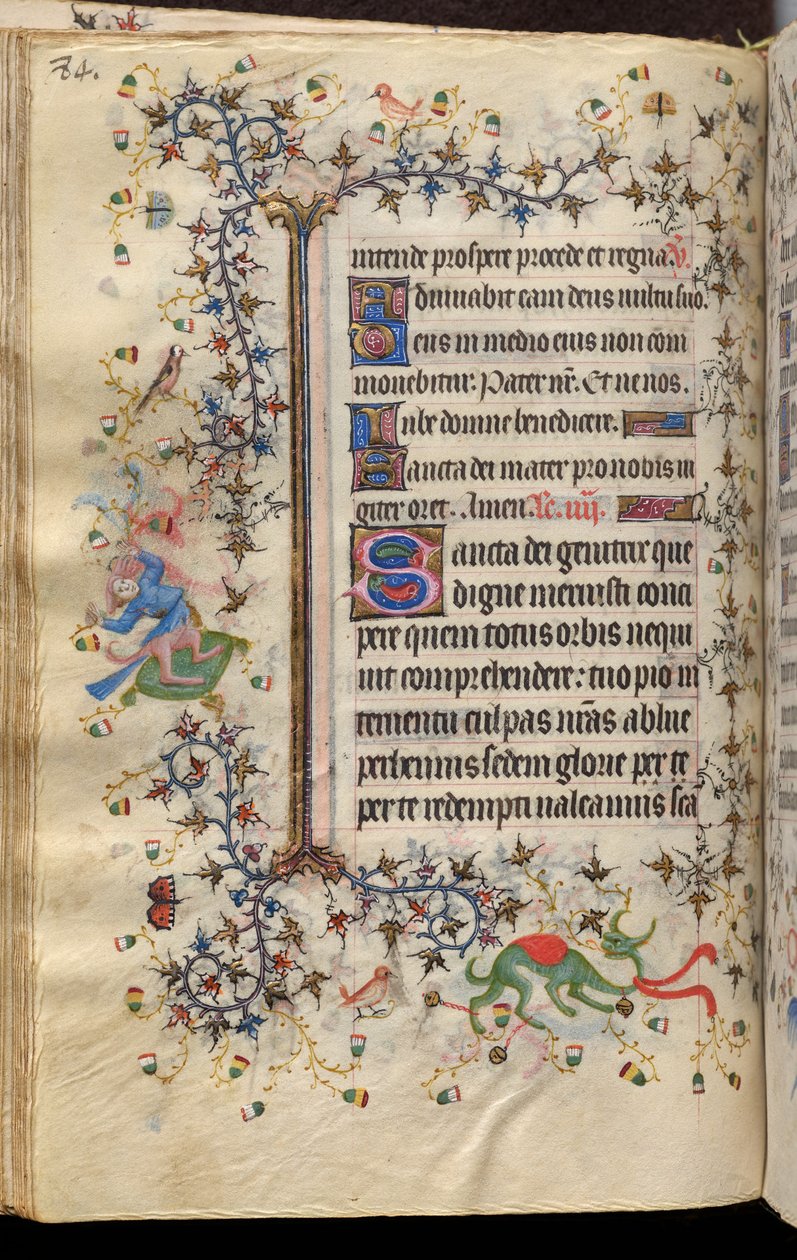 84.
intende prospere procede et regna. V.
Adiuvabit eam deus vultu suo.
Deus in medio eius non com
movebitur. Pater nr̄. Et ne nos.
Iube domne benedicere.
Sancta dei mater pro nobis iu
giter oret. Amen. Lc. iiij.
Sancta dei genitrix que
digne meruisti conci
pere quem totus orbis nequi
uit comprehendere: tuo pio in
teruentu culpas nr̄as ablue
perhennis sedem glorie per te
per te redempti ualeamus scā